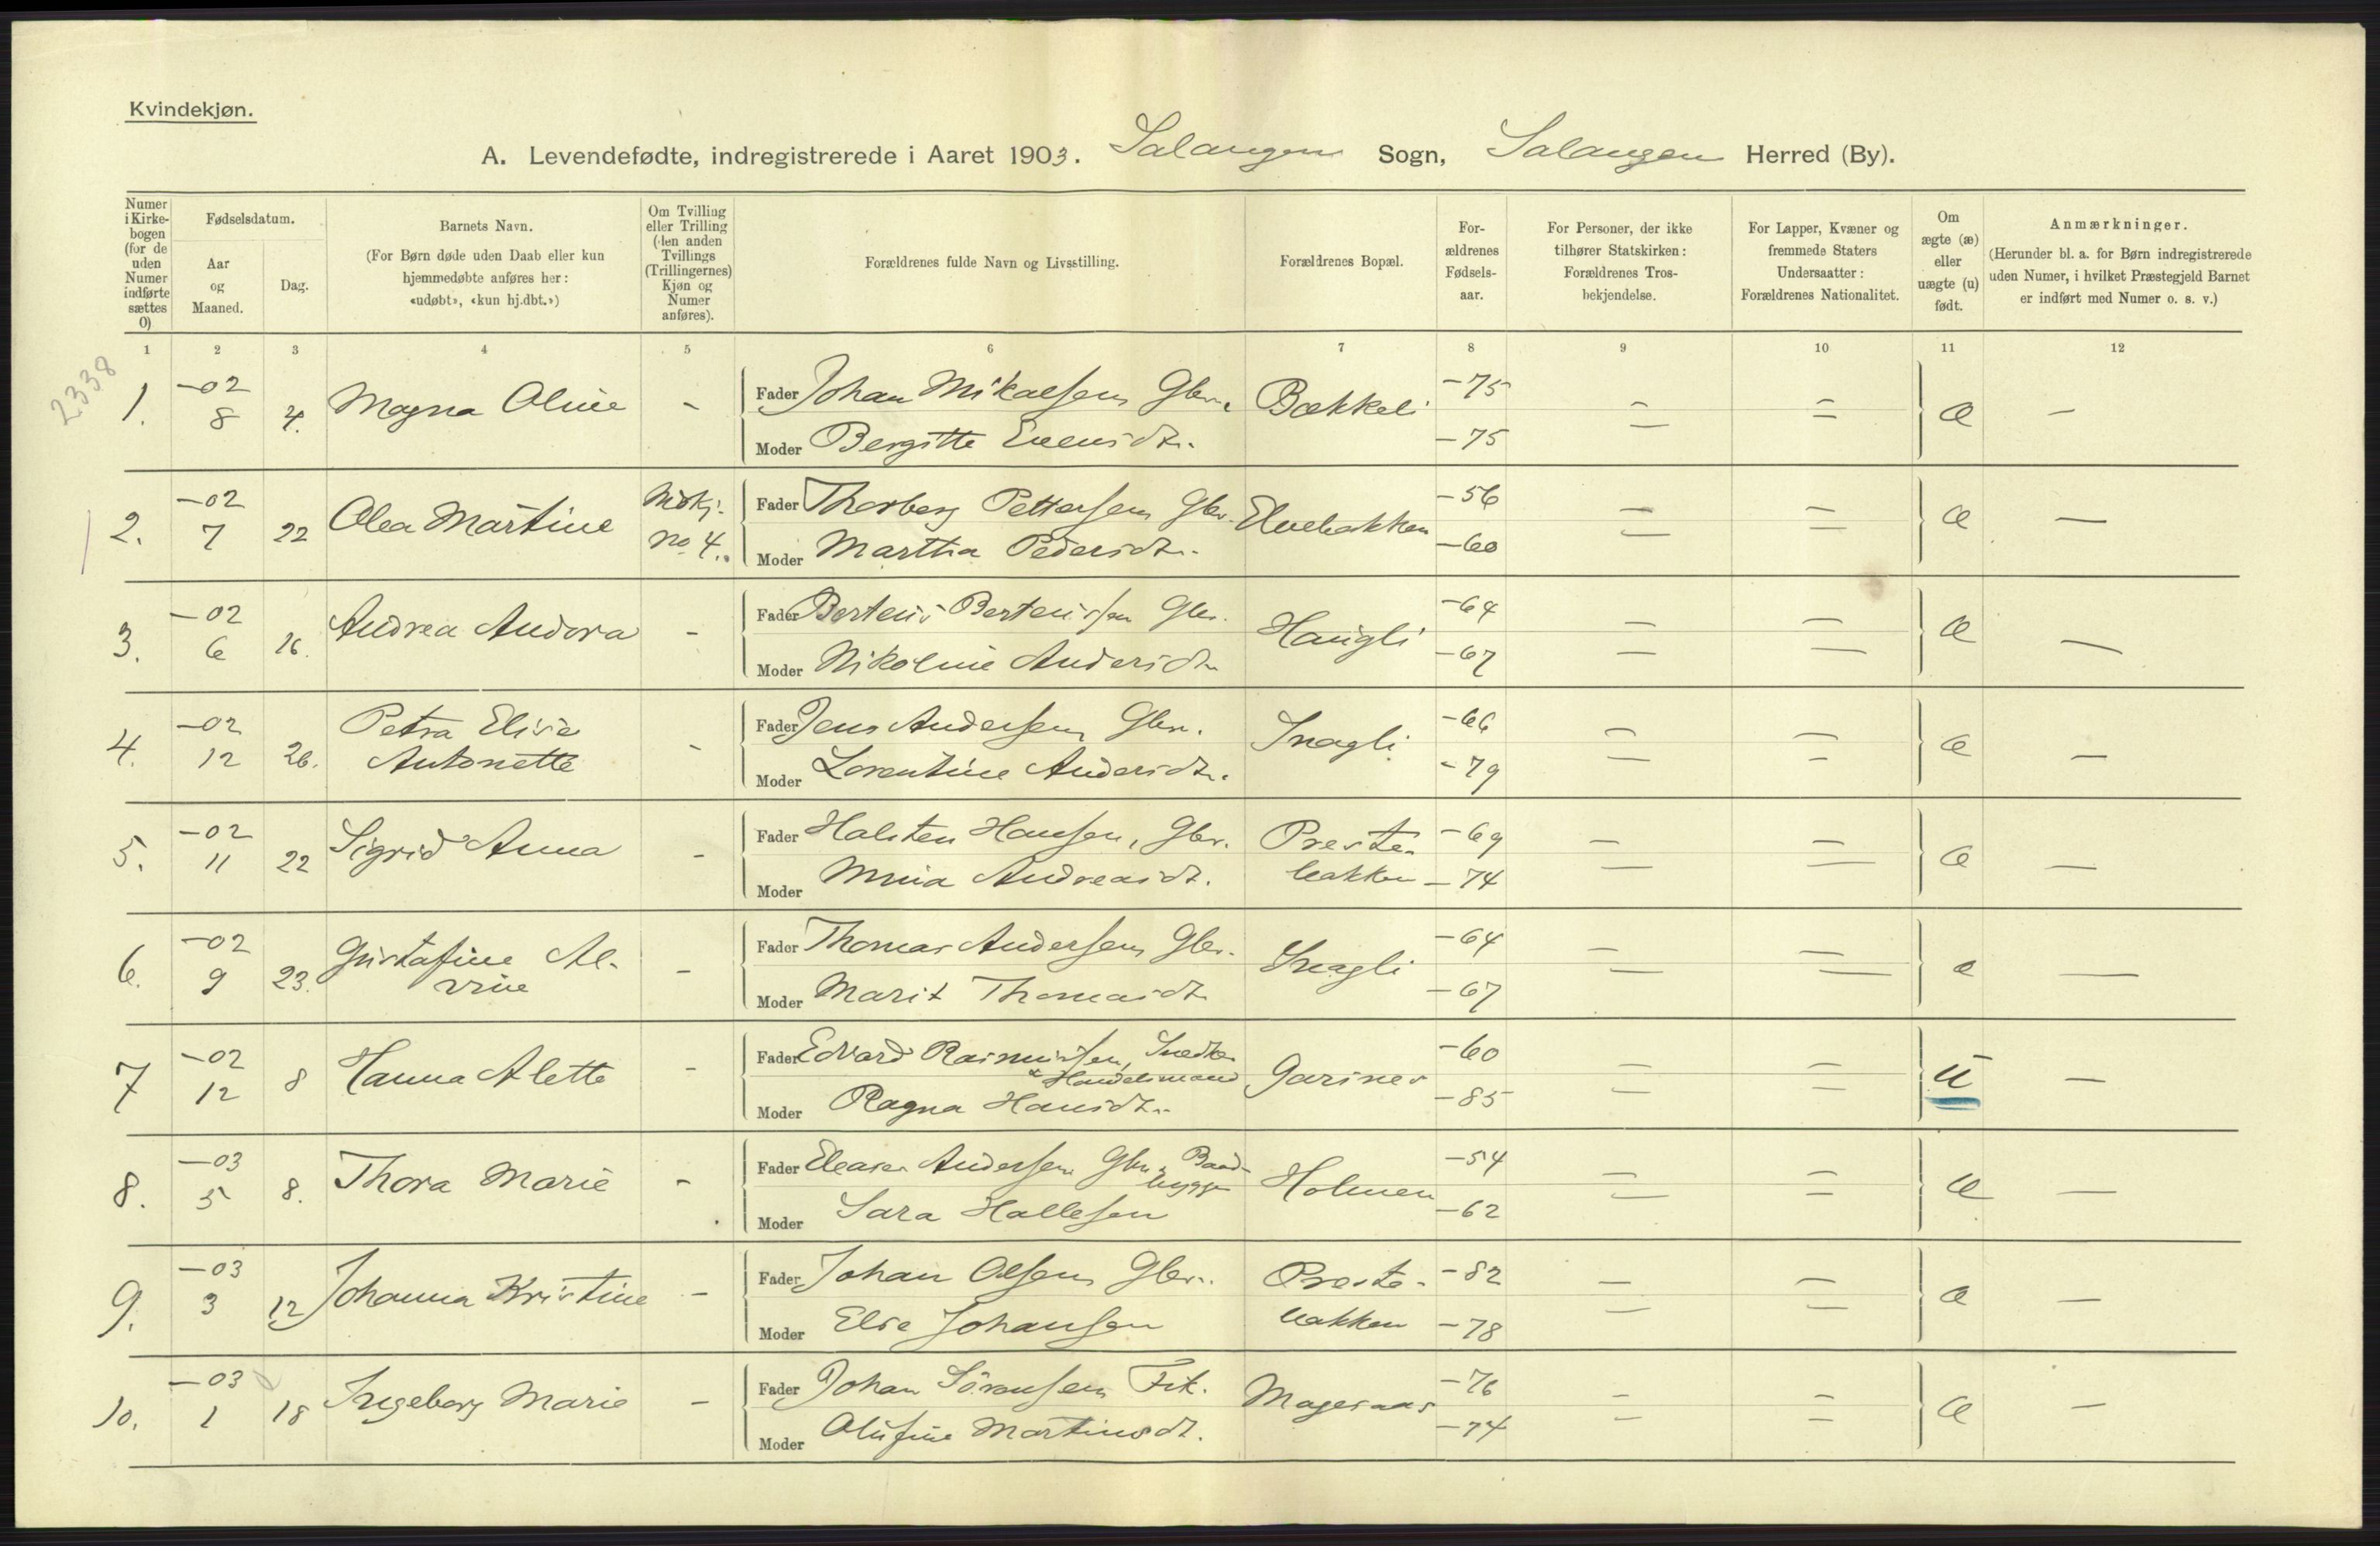 Kvindekjøn.
A. Levendefødte, indregistrerede i Aaret 1903. Salangen Sogn, Salangen Herred (By).
Numer i Kirkebogen (for de uden Numer indførte sættes 0)
Fødselsdatum.
Aar og Maaned.
Dag.
Barnets Navn.
(For Børn døde uden Daab eller kun hjemmedøbte anføres her: «udøbt», «kun hj.dbt.»)
Om Tvilling eller Trilling (den anden Tvillings (Trillingernes) Kjøn og Numer anføres).
Forældrenes fulde Navn og Livsstilling.
Forældrenes Bopæl.
Forældrenes Fødselsaar.
For Personer, der ikke tilhører Statskirken: Forældrenes Trosbekjendelse.
For Lapper, Kvæner og fremmede Staters Undersaatter: Forældrenes Nationalitet.
Om ægte (æ) eller uægte (u) født.
Anmærkninger.
(Herunder bl. a. for Børn indregistrerede uden Numer, i hvilket Præstegjeld Barnet er indført med Numer o. s. v.)
1 2 3 4 5 6 7 8 9 10 11 12
2338
1. -02 8 4. Magna Oline - Fader Johan Mikaelsen Gbr. Bækkeli -75 æ -
Moder Bergitte Evensdtr. -75
2. -02 7 22 Olea Martine Mdkj. no 4. Fader Thorberg Pettersen Gbr. Elvebakken -56 æ -
Moder Martha Pedersdtr. -60
3. -02 6 16. Andrea Andora - Fader Berteus Berteussen Gbr. Haugli -64 æ -
Moder Nikoline Andersdtr -67
4. -02 12 26. Petra Elise Antonette - Fader Jens Andersen Gbr. Snagli -66 æ -
Moder Lorentine Andersdtr. -79
5. -02 11 22 Sigrid Anna - Fader Halsten Hansen, Gbr. Prestebakken -69 æ -
Moder Mina Andreasdt. -74
6. -02 9 23. Gustafine Alvine - Fader Thomas Andersen Gbr. Snagli -64 æ -
Moder Marit Thomasdt -67
7 -02 12 8 Hanna Alette - Fader Edvard Rasmussen, Snedker & Handelsmand Garsnes -60 u -
Moder Ragna Hansdtr. -85
8. -03 5 8. Thora Marie - Fader Eleaser Andersen Gbr. Baadbygger Holmen -54 æ -
Moder Sara Hallesen -62
9. -03 3 12 Johanna Kristine - Fader Johan Olsen Gbr. Prestebakken -82 æ -
Moder Else Johansen -78
10. -03 1 18 Ingeborg Marie - Fader Johan Sörensen Fsk. -76 æ -
Moder Olufine Martinsdt. -74